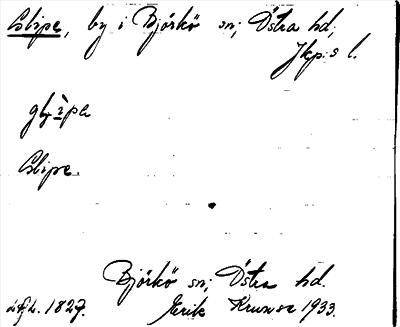 Glipe, by i Björkö sn; Östra hd;
Jkp:s l.
glì̱pa
Glipe.
Björkö sn; Östra hd.
1827.
Erik 1933.